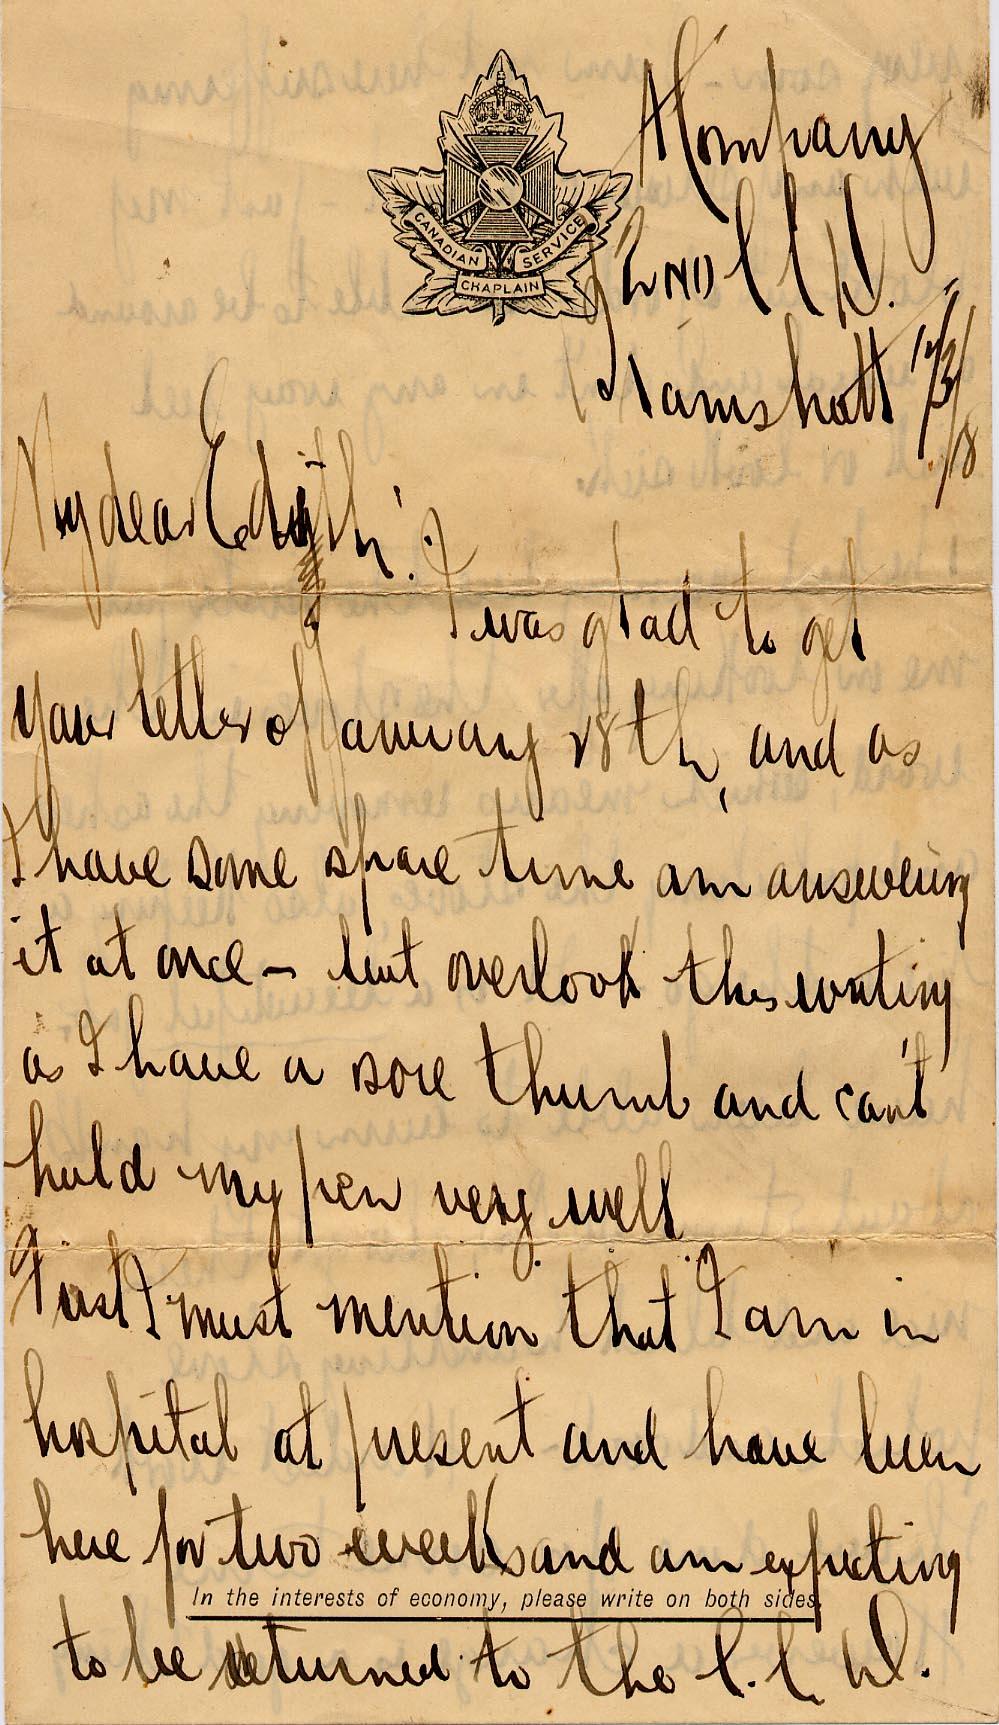 A Company
CANADIAN
CHAPLAIN
SERVICE
2ND C C D.
Bramshott 17/3/18
My dear Edith:
I was glad to get
your letter of January 28th, and as
I have some spare time am answering
it at once – but overlook this writing
as I have a sore thumb and can't
hold my pen very well
First I must mention that I am in
hospital at present and have been
here for two weeks and am expecting
In the interests of economy, please write on both sides
to be returned to the C. C. D.